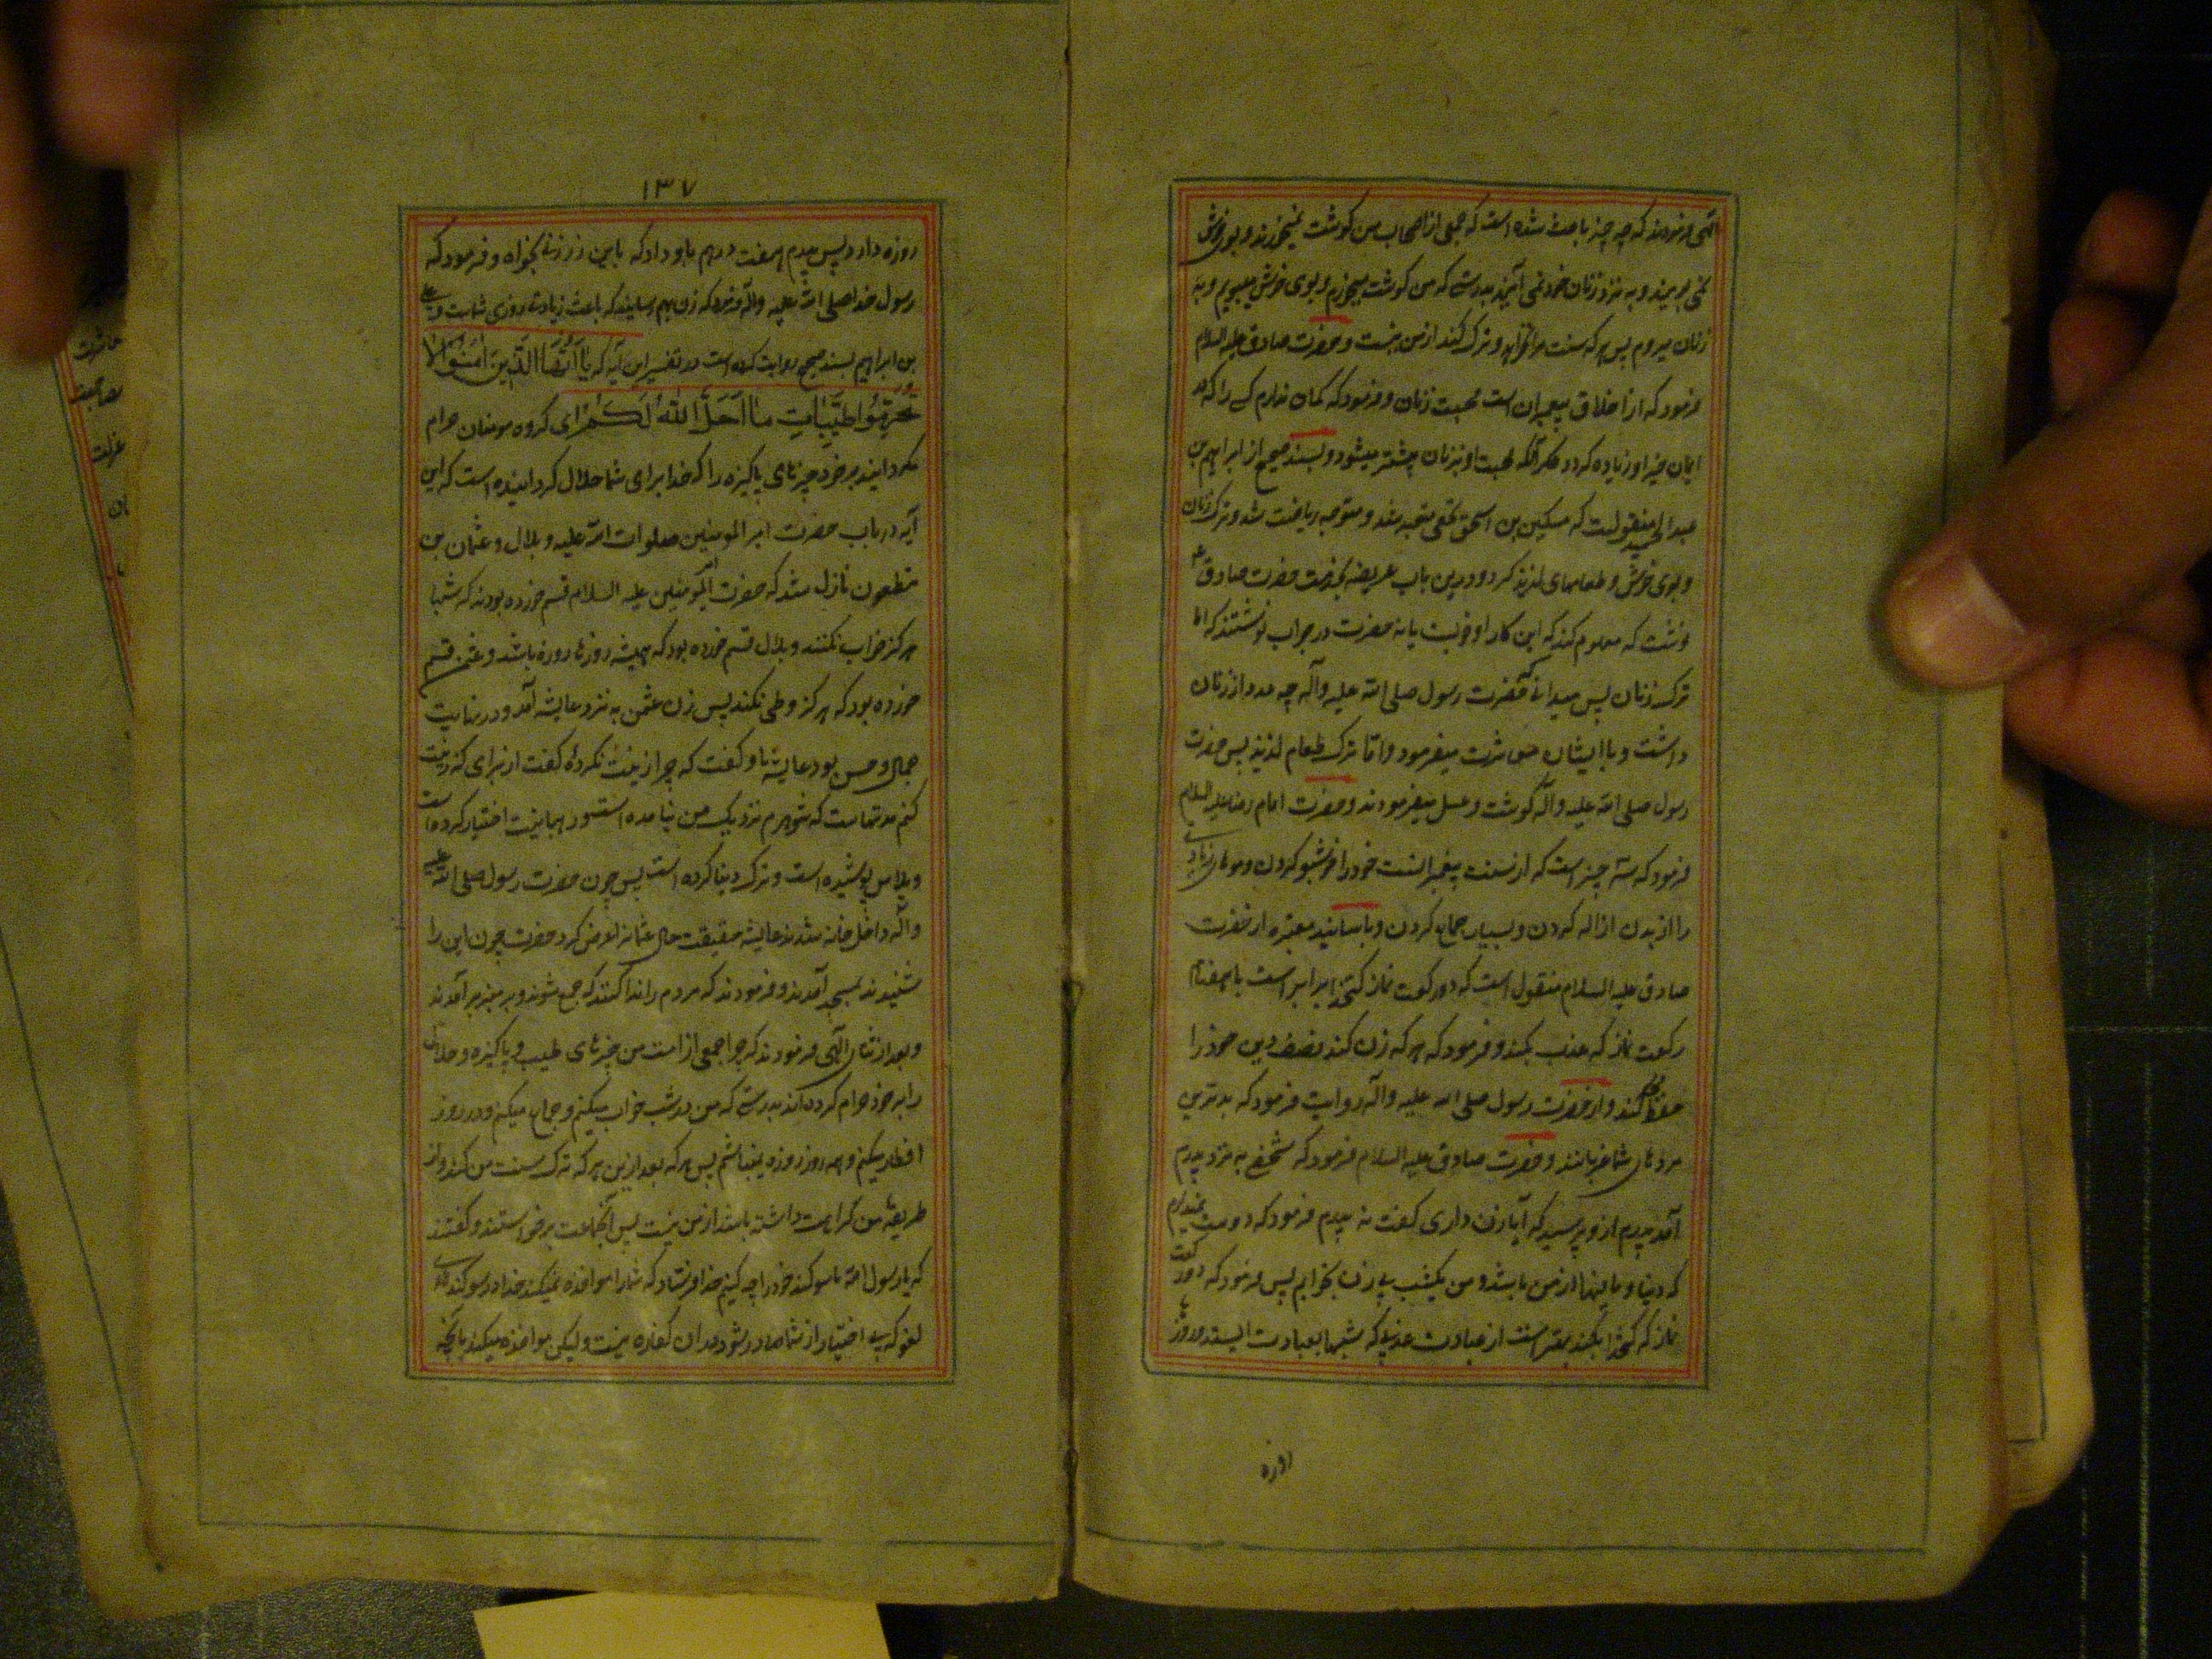 الهی فرمودند که چه چیز باعث شده است که جمعی از اصحاب من گوشت نمیخورند و بوی خوش
نمی بویند و به نزد زنان خود نمی آیند بدرستی که من گوشت میخورم و بوی خوش میبویم و به
زنان میروم پس هر که سنت مرا نخواهد و ترک کند از من نیست و حضرت صادق علیه السلام
فرمود که از اخلاق پیغمبران است محبت زنان و فرمود که گمان ندارم کسی را که در
ایمان خیر او زیاده گردد مگر آنکه محبت او بزنان بیشتر میشود و بسند صحیح از ابراهیم بن
عبد الحمید منقولست که مسکین بن اسحق نخعی متعبد شد و متوجه ریاضت شد و ترک زنان
و بوی خوش و طعامهای لذیذ کرد و درین باب عریضه بخدمت حضرت صادق ع
نوشت که معلوم کند که این کار او خوبست یا نه حضرت در جواب نوشتند که اما
ترک زنان پس میدانی که حضرت رسول صلی الله علیه وآله چه عدد از زنان
داشت و با ایشان معاشرت میفرمود و اما ترک طعام لذیذ پس حضرت
رسول صلی الله علیه وآله گوشت و عسل میفرمودند و حضرت امام رضا علیه السلام
فرمود که سه چیز است که از سنت پیغمبرانست خود را خوشبو کردن و موهای زیادی
را از بدن ازاله کردن و بسیار جماع کردن و باسانید معتبره از حضرت
صادق علیه السلام منقول است که دو رکعت نماز کتخدا برابر است با هفتاد
رکعت نماز که عذب بکند و فرمود که هر که زن کند نصف دین خود را
حفظ کند و از حضرت رسول صلی الله علیه وآله روایت فرمود که بدترین
مردهای شما عزبانند و حضرت صادق علیه السلام فرمود که شخصی به نزد پدرم
آمد پدرم از و پرسید که آیا زن داری گفت نه پدرم فرمود که دوست نمیدارم
که دنیا و ما فیها از من باشد و من یکشب بی زن بخوابم پس فرمود که دو رکعت
نماز که کتخدا بکند بهتر است از عبادت عذبی که شبها بعبادت ایستد و روزها
روزه
۱۳۷
روزه دارد پس پدرم هفت درهم باو داد که باین زر زنی بخواه و فرمود که
رسول خدا صلی الله علیه وآله فرمود که زن بهم رسانید که باعث زیادتی روزی شماست و علی
بن ابراهیم بسند صحیح روایت کرده است در تفسیر این آیه که یا ایها الذین امنوا لا
تحرموا طیبات ما احل الله لکم ای گروه مومنان حرام
مگردانید بر خود چیزهای پاکیزه را که خدا برای شما حلال گردانیده است که این
آیه در باب حضرت امیر المومنین صلوات الله علیه و بلال و عثمان بن
مظعون نازل شد که حضرت امیرالمومنین علیه السلام قسم خورده بودند که شبها
هرگز خواب نکنند و بلال قسم خورده بود که همیشه روزها روزه باشد و عثمن قسم
خورده بود که هرگز وطی نکند پس زن عثمن به نزد عایشه آمد و در نهایت
جمال و حسن بود عایشه باو گفت که چرا زینت نکردهٔ گفت از برای که زینت
کنم مدتهاست که شوهرم نزدیک من نیامده است و رهبانیت اختیار کرده است
و پلاس پوشیده است و ترک دنیا کرده است پس چون حضرت رسول صلی الله علیه
وآله داخل خانه شدند عایشه حقیقت حال عثمانرا عرض کرد حضرت چون این را
شنیدند بمسجد آمدند و فرمودند که مردم را ندا کنند که جمع شوند و بر منبر برآمدند
و بعد از ثنای الهی فرمودند که چرا جمعی از امت من چیزهای طیب و پاکیزه و حلال
را بر خود حرام کرده اند بدرستی که من در شب خواب میکنم و جماع میکنم و در روز
افطار میکنم و همه روز روزه نمیباشم پس هر که بعد ازین هر که ترک سنت من کند و از
طریقهٔ من کراهت داشته باشد از من نیست پس آنجماعت برخواستند و گفتند
که یا رسول الله ما سوگند خود را چه کنیم خدا فرستاد که شما را مواخذه نمیکند خدا در سوگندهای
لغو که بی اختیار از شما صادر شود در ان کفاره نیست ولیکن مواخذه میکند بآنچه